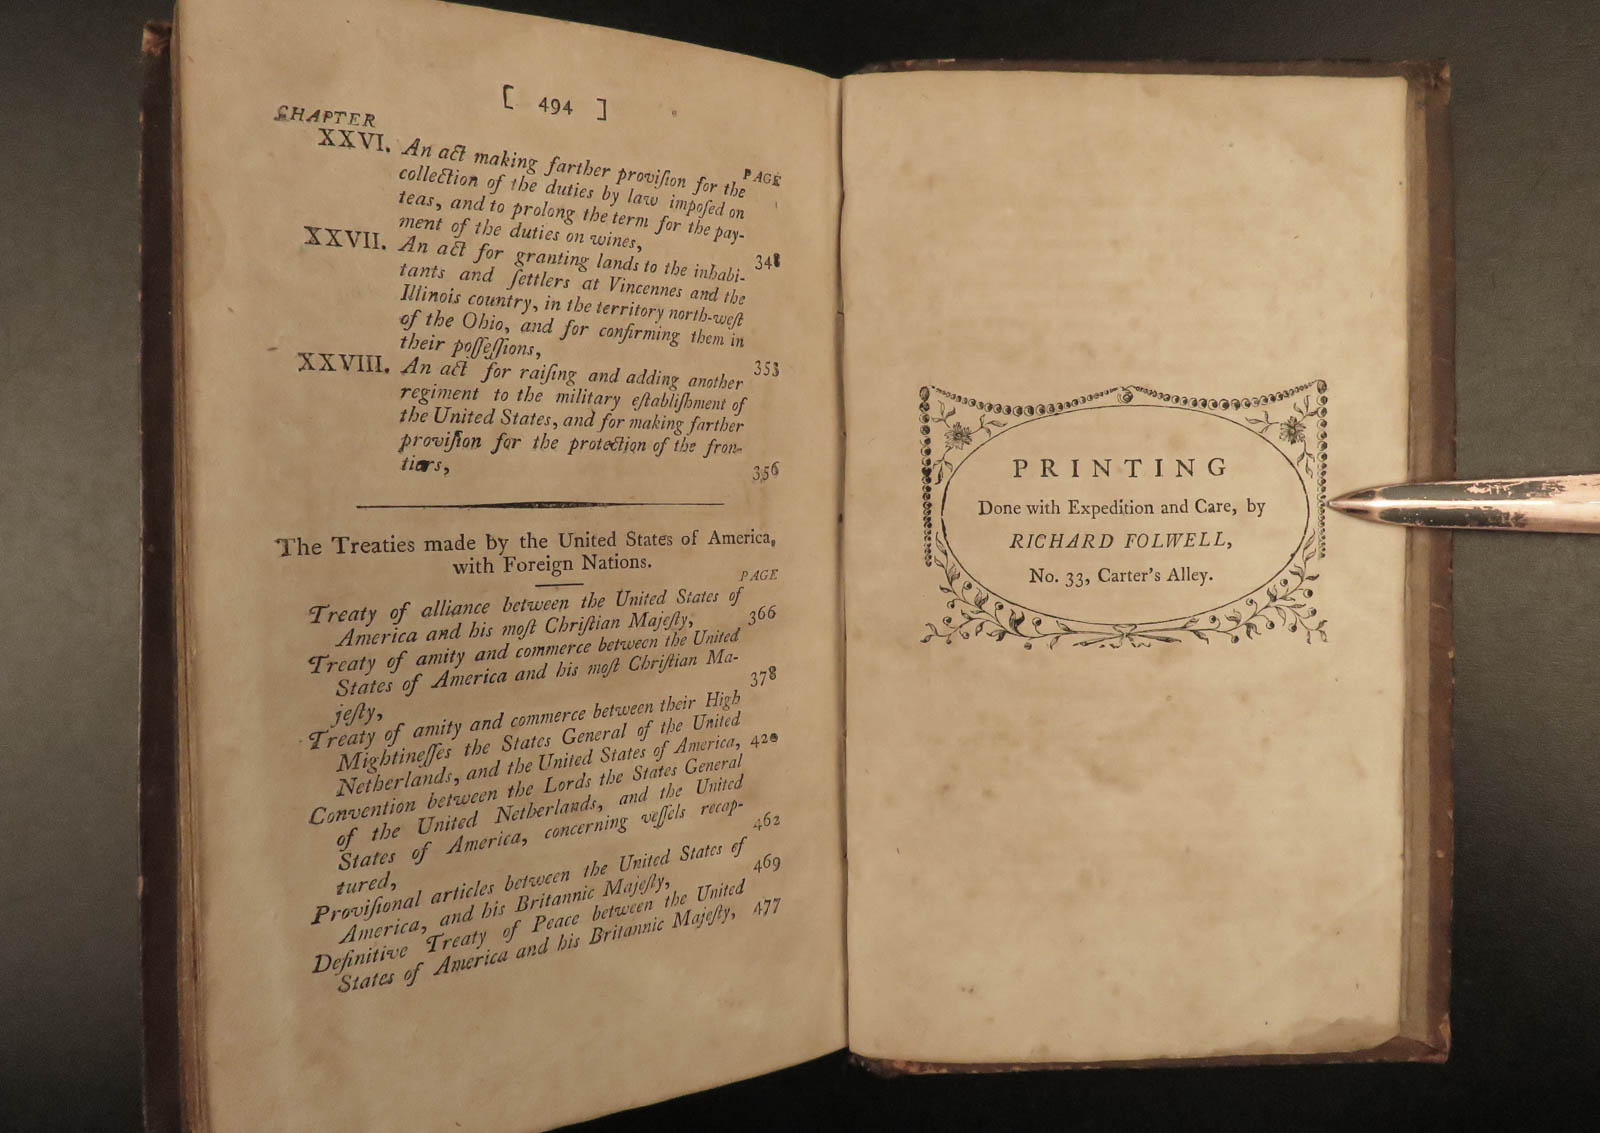 [ 494 ]
CHAPTER
PAGE
XXVI. An act making farther proviſion for the
collection of the duties by law impoſed on
teas, and to prolong the term for the pay-
ment of the duties on wines, 348
XXVII. An act for granting lands to the inhabi-
tants and ſettlers at Vincennes and the
Illinois country, in the territory north-weſt
of the Ohio, and for confirming them in
their poſſeſſions, 353
XXVIII. An act for raiſing and adding another
regiment to the military eſtabliſhment of
the United States, and for making farther
proviſion for the protection of the fron-
tiers, 356
The Treaties made by the United States of America,
with Foreign Nations.
PAGE
Treaty of alliance between the United States of
America and his moſt Chriſtian Majeſty, 366
Treaty of amity and commerce between the United
States of America and his moſt Chriſtian Ma-
jeſty, 378
Treaty of amity and commerce between their High
Mightineſſes the States General of the United
Netherlands, and the United States of America, 420
Convention between the Lords the States General
of the United Netherlands, and the United
States of America, concerning veſſels recap-
tured, 462
Proviſional articles between the United States of
America, and his Britannic Majeſty, 469
Definitive Treaty of Peace between the United
States of America and his Britannic Majeſty, 477
PRINTING
Done with Expedition and Care, by
RICHARD FOLWELL,
No. 33, Carter's Alley.